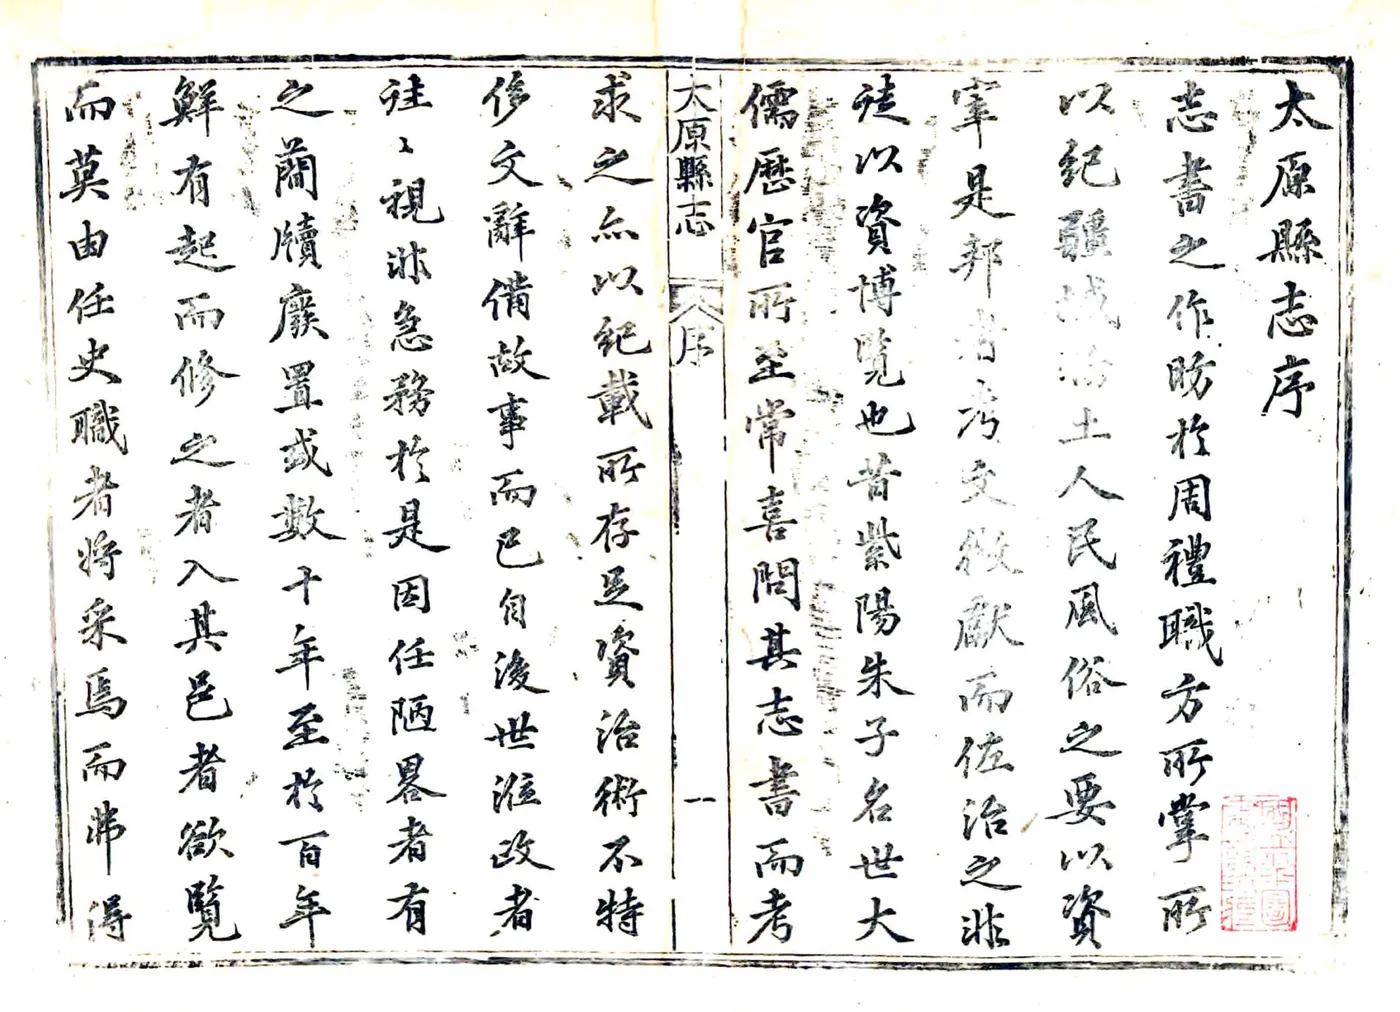 太原縣志序
志書之作昉於周禮職方所掌所
以紀疆域治土人民風俗之要以資
宰是邦者考文徵獻而佐治之非
徒以資博覽也昔紫陽朱子名世大
儒歷官所至常喜問其志書而考
太原縣志 序 一
求之亦以紀載所存足資治術不特
侈文辭備故事而已自後世涖政者
往〻視非急務於是因任陋畧者有
之蘭牘廢置或數十年至於百年
鮮有起而修之者入其邑者欲覽
而莫由任史職者將采焉而弗得